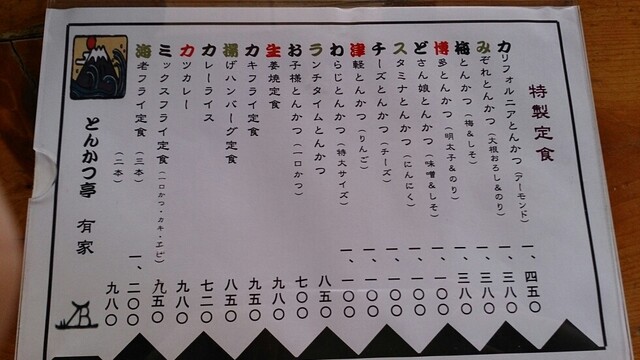 特製定食
カリフォルニアとんかつ(アーモンド) 一、四五〇
みぞれとんかつ(大根おろし&のり) 一、三八〇
梅とんかつ(梅&しそ) 一、三八〇
博多とんかつ(明太子&のり) 一、三八〇
どさん娘とんかつ(味噌&しそ) 一、一〇〇
スタミナとんかつ(にんにく) 一、一〇〇
チーズとんかつ(チーズ) 一、一〇〇
津軽とんかつ(りんご) 一、一〇〇
わらじとんかつ(特大サイズ) 一、一〇〇
ランチタイムとんかつ 八五〇
お子様とんかつ(一口かつ) 七〇〇
生姜焼定食 九八〇
カキフライ定食 九五〇
揚げハンバーグ定食 八五〇
カレーライス 七二〇
カツカレー 九八〇
ミックスフライ定食(一口かつ・カキ・エビ) 九五〇
海老フライ定食(三本) 一、二〇〇
(二本) 九八〇
とんかつ亭 有家